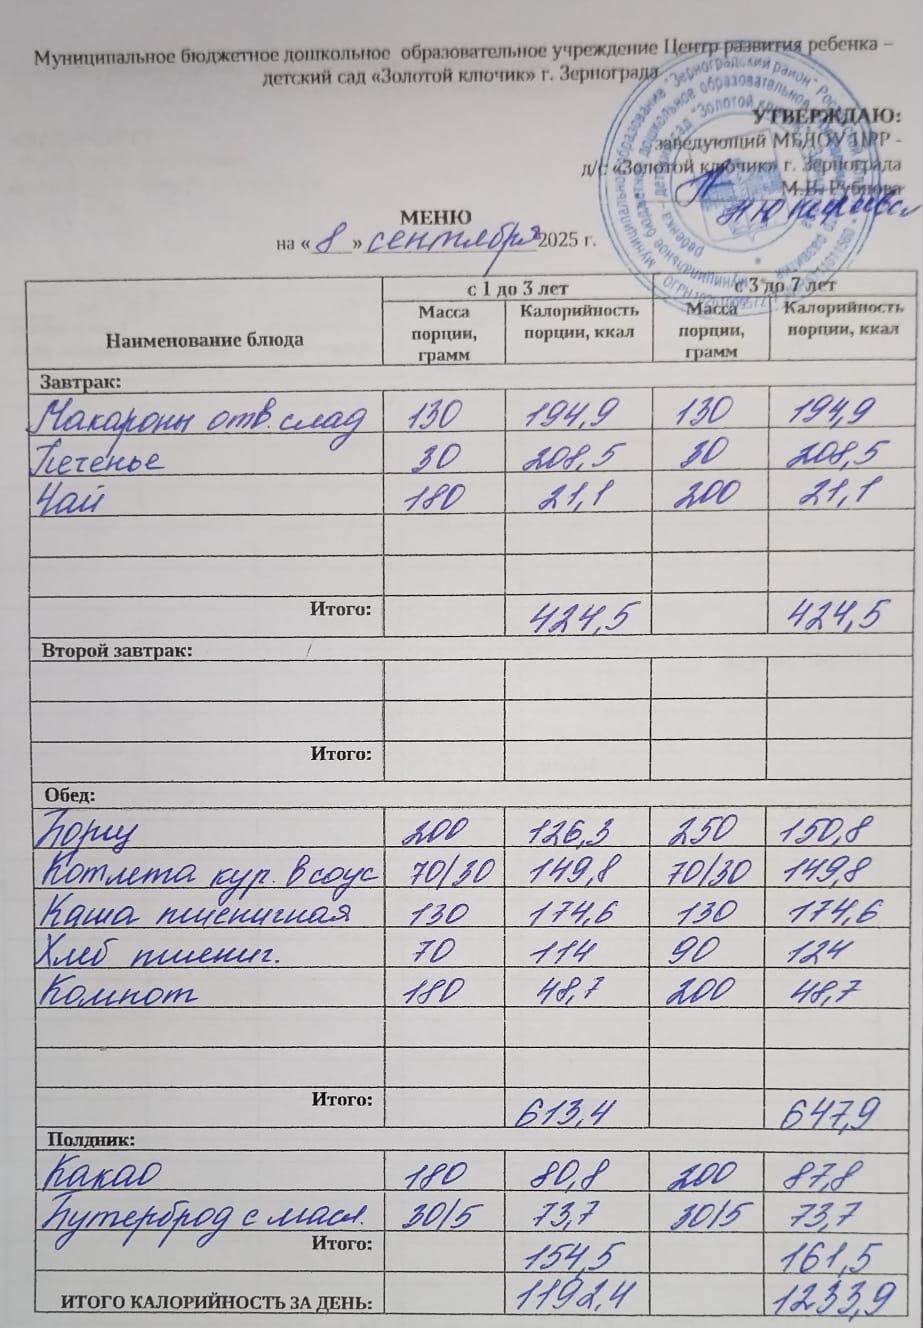 Муниципальное бюджетное дошкольное образовательное учреждение Центр развития ребенка –
детский сад «Золотой ключик» г. Зернограда
УТВЕРЖДАЮ:
заведующий МБДОУ ЦРР -
д/с «Золотой ключик» г. Зернограда
М.В. Рубцова
МЕНЮ
на « 8 » сентября 2025 г.
Наименование блюда с 1 до 3 лет с 3 до 7 лет
Масса порции, грамм Калорийность порции, ккал Масса порции, грамм Калорийность порции, ккал
Завтрак:
Макароны отв. слад 130 194,9 130 194,9
Печенье 30 208,5 30 208,5
Чай 180 21,1 200 21,1
Итого: 424,5 424,5
Второй завтрак:
Итого:
Обед:
Борщ 200 126,3 250 150,8
Котлета кур. в соус 70/30 149,8 70/30 149,8
Каша пшеничная 130 174,6 130 174,6
Хлеб пшенич. 70 114 90 124
Компот 180 48,7 200 48,7
Итого: 613,4 647,9
Полдник:
Какао 180 80,8 200 87,8
Бутерброд с масл. 30/5 73,7 30/5 73,7
Итого: 154,5 161,5
ИТОГО КАЛОРИЙНОСТЬ ЗА ДЕНЬ: 1192,4 1233,9